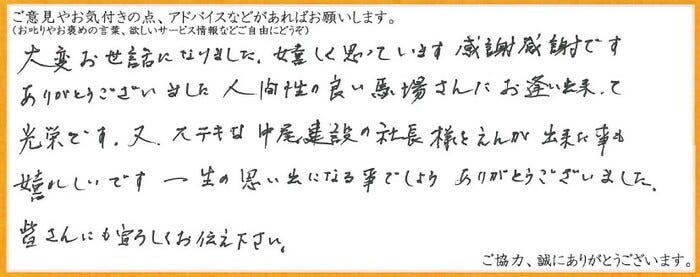 ご意見やお気付きの点、アドバイスなどがあればお願いします。
(お叱りやお褒めの言葉、欲しいサービス情報などご自由にどうぞ)
大変お世話になりました。嬉しく思っています 感謝感謝です
ありがとうございました 人間性の良い馬場さんにお逢い出来て
光栄です。又、ステキな中尾建設の社長様とえんが出来た事も
嬉れしいです 一生の思い出になる事でしょう ありがとうございました。
皆さんにも宜ろしくお伝え下さい。
ご協力、誠にありがとうございます。